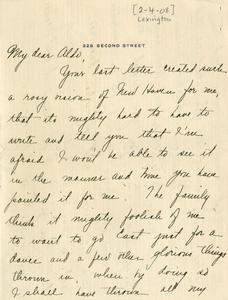 [2-4-08]
Lexington
328 SECOND STREET
My dear Aldo,
Your last letter created such
a rosy vision of New Haven for me,
that its mighty hard to have to
write and tell you that I'm
afraid I won't be able to see it
in the manner and time you have
painted it for me. The family
think it mighty foolish of me
to want to go East just for a
dance and a few other glorious things
thrown in when by doing so
I shall have thrown all my